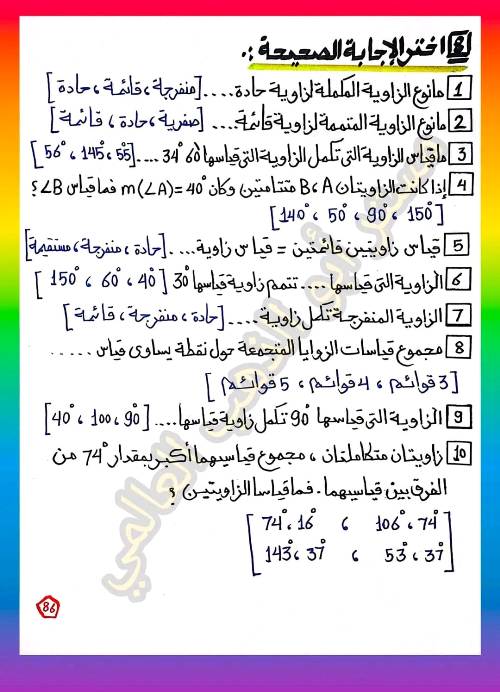 8 اختر الإجابة الصحيحة :.
1 مانوع الزاوية المكملة لزاوية حادة.... [منفرجة، قائمة، حادة]
2 مانوع الزاوية المتممة لزاوية قائمة.... [صفرية، حادة، قائمة]
3 ماقياس الزاوية التى تكمل الزاوية التى قياسها 60' 34° .... [55، 145°، 56°]
4 إذا كانت الزاويتان B،A متتامتين وكان m(∠A)=40° فما قياس ∠B؟
[140°، 50°، 90°، 150°]
5 قياس زاويتين قائمتين = قياس زاوية.... [حادة، منفرجة، مستقيمة]
6 الزاوية التى قياسها .... تتمم زاوية قياسها 30° [40°، 60°، 150°]
7 الزاوية المنفرجة تكمل زاوية.... [حادة، منفرجة، قائمة]
8 مجموع قياسات الزوايا المتجمعة حول نقطة يساوى قياس .....
[3 قوائم، 4 قوائم، 5 قوائم]
9 الزاوية التى قياسها 90° تكمل زاوية قياسها.... [90°، 100، 40°]
10 زاويتان متكاملتان، مجموع قياسيهما أكبر بمقدار 74° من
الفرق بين قياسيهما. فما قياسا الزاويتين ؟
[74°، 16° ، 106°، 74°
143°، 37° ، 53°، 37°]
86